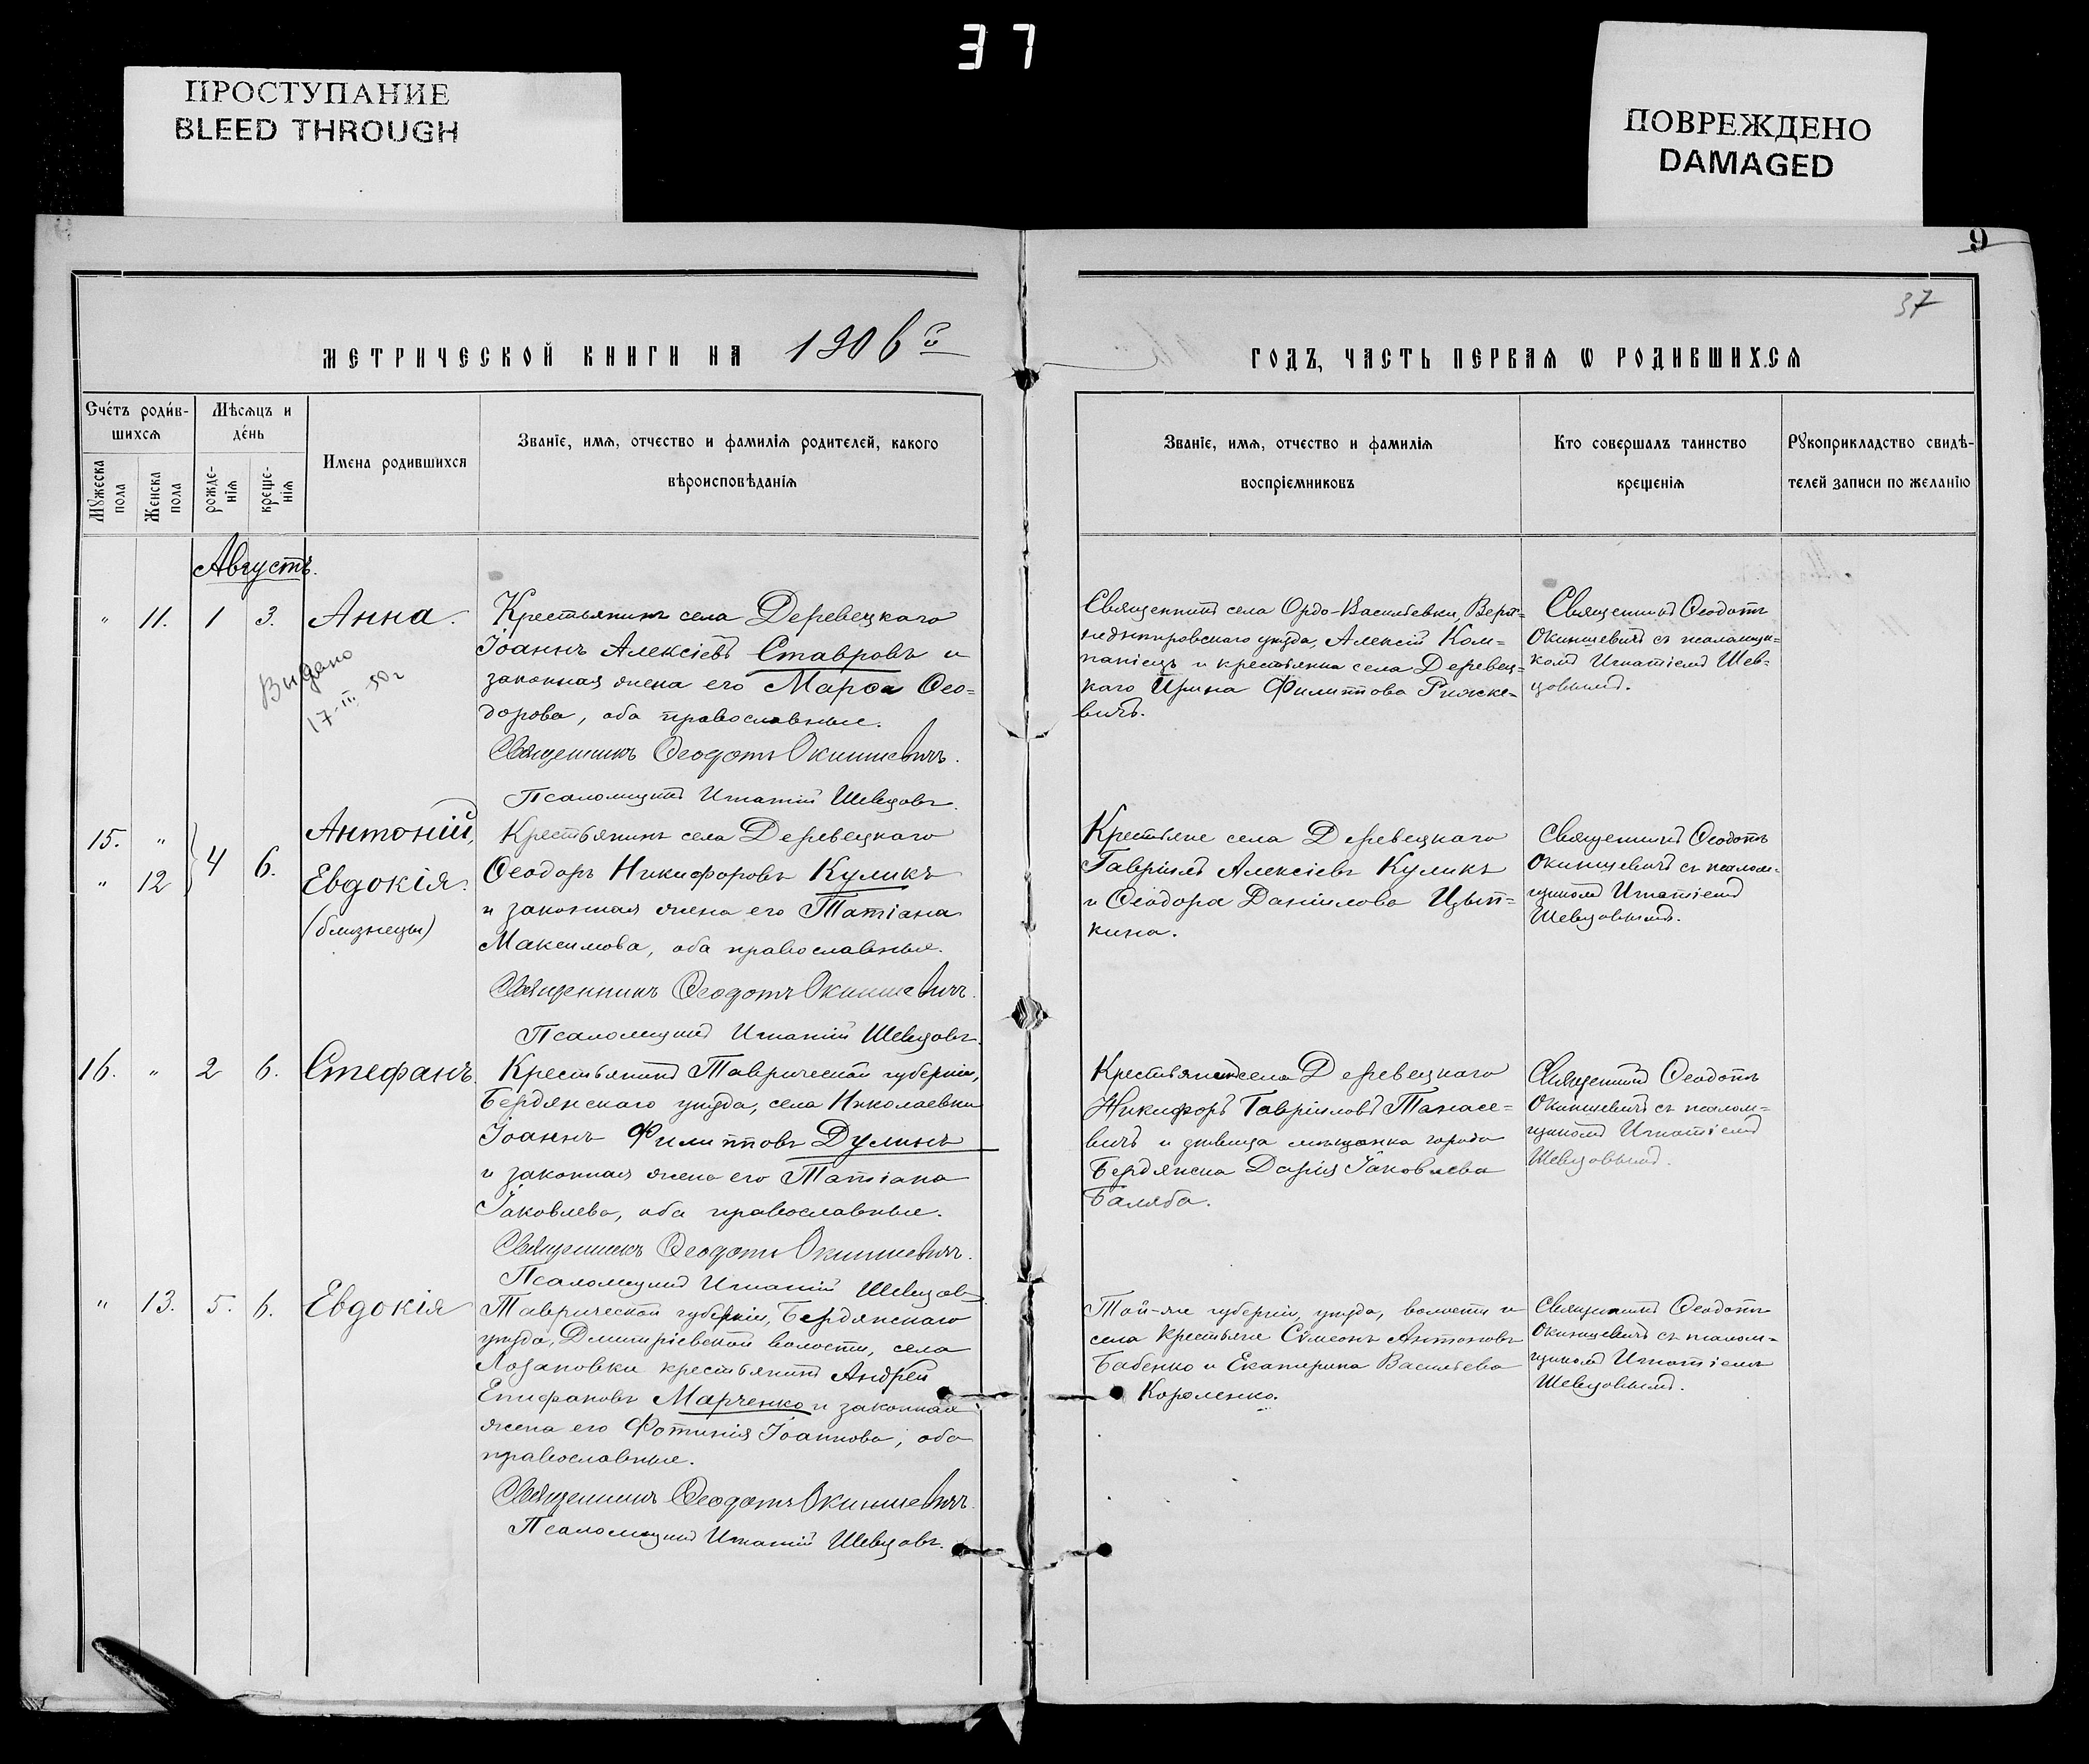 37
ПРОСТУПАНИЕ
BLEED THROUGH
ПОВРЕЖДЕНО
DAMAGED
9
37
МЕТРИЧЕСКОЙ КНИГИ НА 1906й
ГОДЪ, ЧАСТЬ ПЕРВАЯ Ѡ РОДИВШИХСЯ
Счéтъ родив-
шихсѧ
Мꙋжеска пола
Женска пола
Мѣсѧцъ и
дéнь
рожде-
нїѧ
креще-
нїѧ
Имена родившихсѧ
Званїе, имѧ, отчество и фамилїѧ родителей, какого
вѣроисповѣданїѧ
Званїе, имѧ, отчество и фамилїѧ
воспрїемниковъ
Кто совершалъ таинство
крещенїѧ
Рꙋкоприкладство свидѣ-
телей записи по желанїю
Августъ.
" 11. 1 3. Анна.
Выдано
17-III 50 г
Крестьянинъ села Деревецкаго
Іоаннъ Алексіевъ Ставровъ и
законная жена его Марѳа Ѳео-
дорова, оба православные.
Священникъ Ѳеодотъ Окиншевичъ.
Псаломщикъ Игнатій Шевцовъ.
Священникъ села Ордо-Васильевки, Верх-
недніпровскаго уѣзда, Алексій Ком-
паніецъ и крестьянка села Деревец-
каго Ирина Филиппова Рижке-
вичъ.
Священникъ Ѳеодотъ
Окиншевичъ съ псаломщи-
комъ Игнатіемъ Шев-
цовымъ.
15. "
" 12
4 6.
Антоній,
Евдокія.
(близнецы)
Крестьянинъ села Деревецкаго
Ѳеодоръ Никифоровъ Куликъ
и законная жена его Татіана
Максимова, оба православные.
Священникъ Ѳеодотъ Окиншевичъ.
Псаломщикъ Игнатій Шевцовъ.
Крестьяне села Деревецкаго
Гавріилъ Алексіевъ Куликъ
и Ѳеодора Даніилова Цып-
кина.
Священникъ Ѳеодотъ
Окиншевичъ съ псалом-
щикомъ Игнатіемъ
Шевцовымъ.
16. " 2 6. Стефанъ.
Крестьянинъ Таврической губерніи,
Бердянскаго уѣзда, села Николаевки
Іоаннъ Филипповъ Дулинъ
и законная жена его Татіана
Іаковлева, оба православные.
Священникъ Ѳеодотъ Окиншевичъ.
Псаломщикъ Игнатій Шевцовъ
Крестьянинъ села Деревецкаго
Никифоръ Гавріиловъ Танасе-
вичъ и дѣвица мѣщанка города
Бердянска Дарія Іаковлева
Баляба.
Священникъ Ѳеодотъ
Окиншевичъ съ псалом-
щикомъ Игнатіемъ
Шевцовымъ.
" 13. 5. 6. Евдокія
Таврической губерніи, Бердянскаго
уѣзда, Димитріевской волости, села
Лозановки крестьянинъ Андрей
Епифановъ Марченко и законная
жена его Фотинія Іоаннова, оба
православные.
Священникъ Ѳеодотъ Окиншевичъ.
Псаломщикъ Игнатій Шевцовъ.
Той-же губерніи, уѣзда, волости и
села крестьяне Сѵмеонъ Антоновъ
Бабенко и Екатерина Васильева
Короленко.
Священникъ Ѳеодотъ
Окиншевичъ съ псалом-
щикомъ Игнатіемъ
Шевцовымъ.